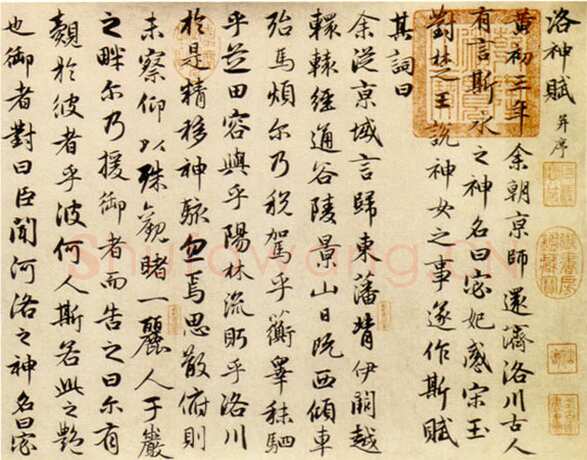 洛神賦 并序
黄初三年余朝京師還濟洛川古人
有言斯水之神名曰宓妃感宋玉
對楚王說神女之事遂作斯賦
其詞曰
余從京域言歸東藩背伊闕越
轘轅經通谷陵景山日既西傾車
殆馬煩尔乃税駕乎蘅皋秣駟
乎芝田容與乎陽林流眄乎洛川
於是精移神駭忽焉思散俯則
未察仰以殊觀睹一麗人于巖
之畔尔乃援御者而告之曰尔有
覿於彼者乎彼何人斯若此之艷
也御者對曰臣聞河洛之神名曰宓
Shufawang.CN